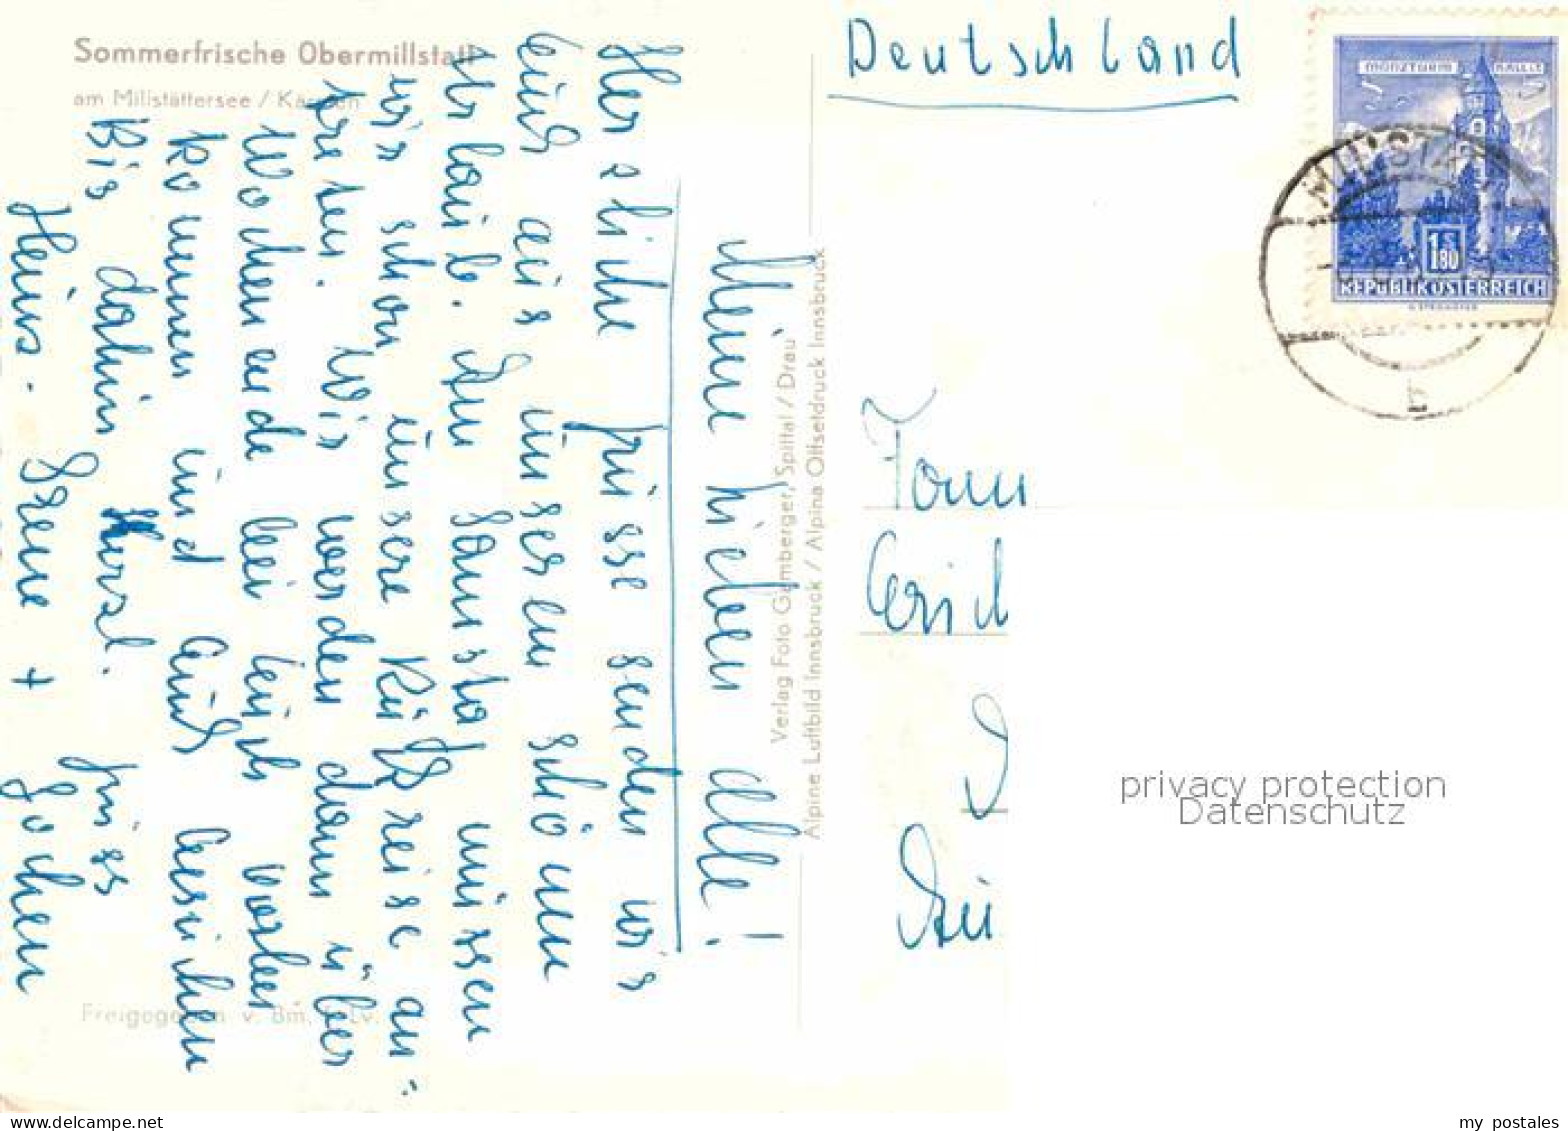 Sommerfrische Obermillstatt
am Millstättersee / Kärnten
Meine lieben alle!
Herzliche Grüsse senden wir
Euch aus unserem schönen
Urlaub. Am Samstag müssen
wir schon unsere Rückreise an-
treten. Wir werden dann über
Wochenende bei Euch vorbei
kommen und Euch besuchen
Bis dahin herzl. Grüss
Heinz. Irene + Jochen
Verlag Foto Gamberger, Spittal / Drau
Alpine Luftbild Innsbruck / Alpina Offsetdruck Innsbruck
Freigegeben v. Bm. f. Lv.
Deutschland
MÜNZTURM HALL I. T.
S 1.80
REPUBLIK ÖSTERREICH
MILLSTATT
Fam
Erich
privacy protection
Datenschutz
my postales